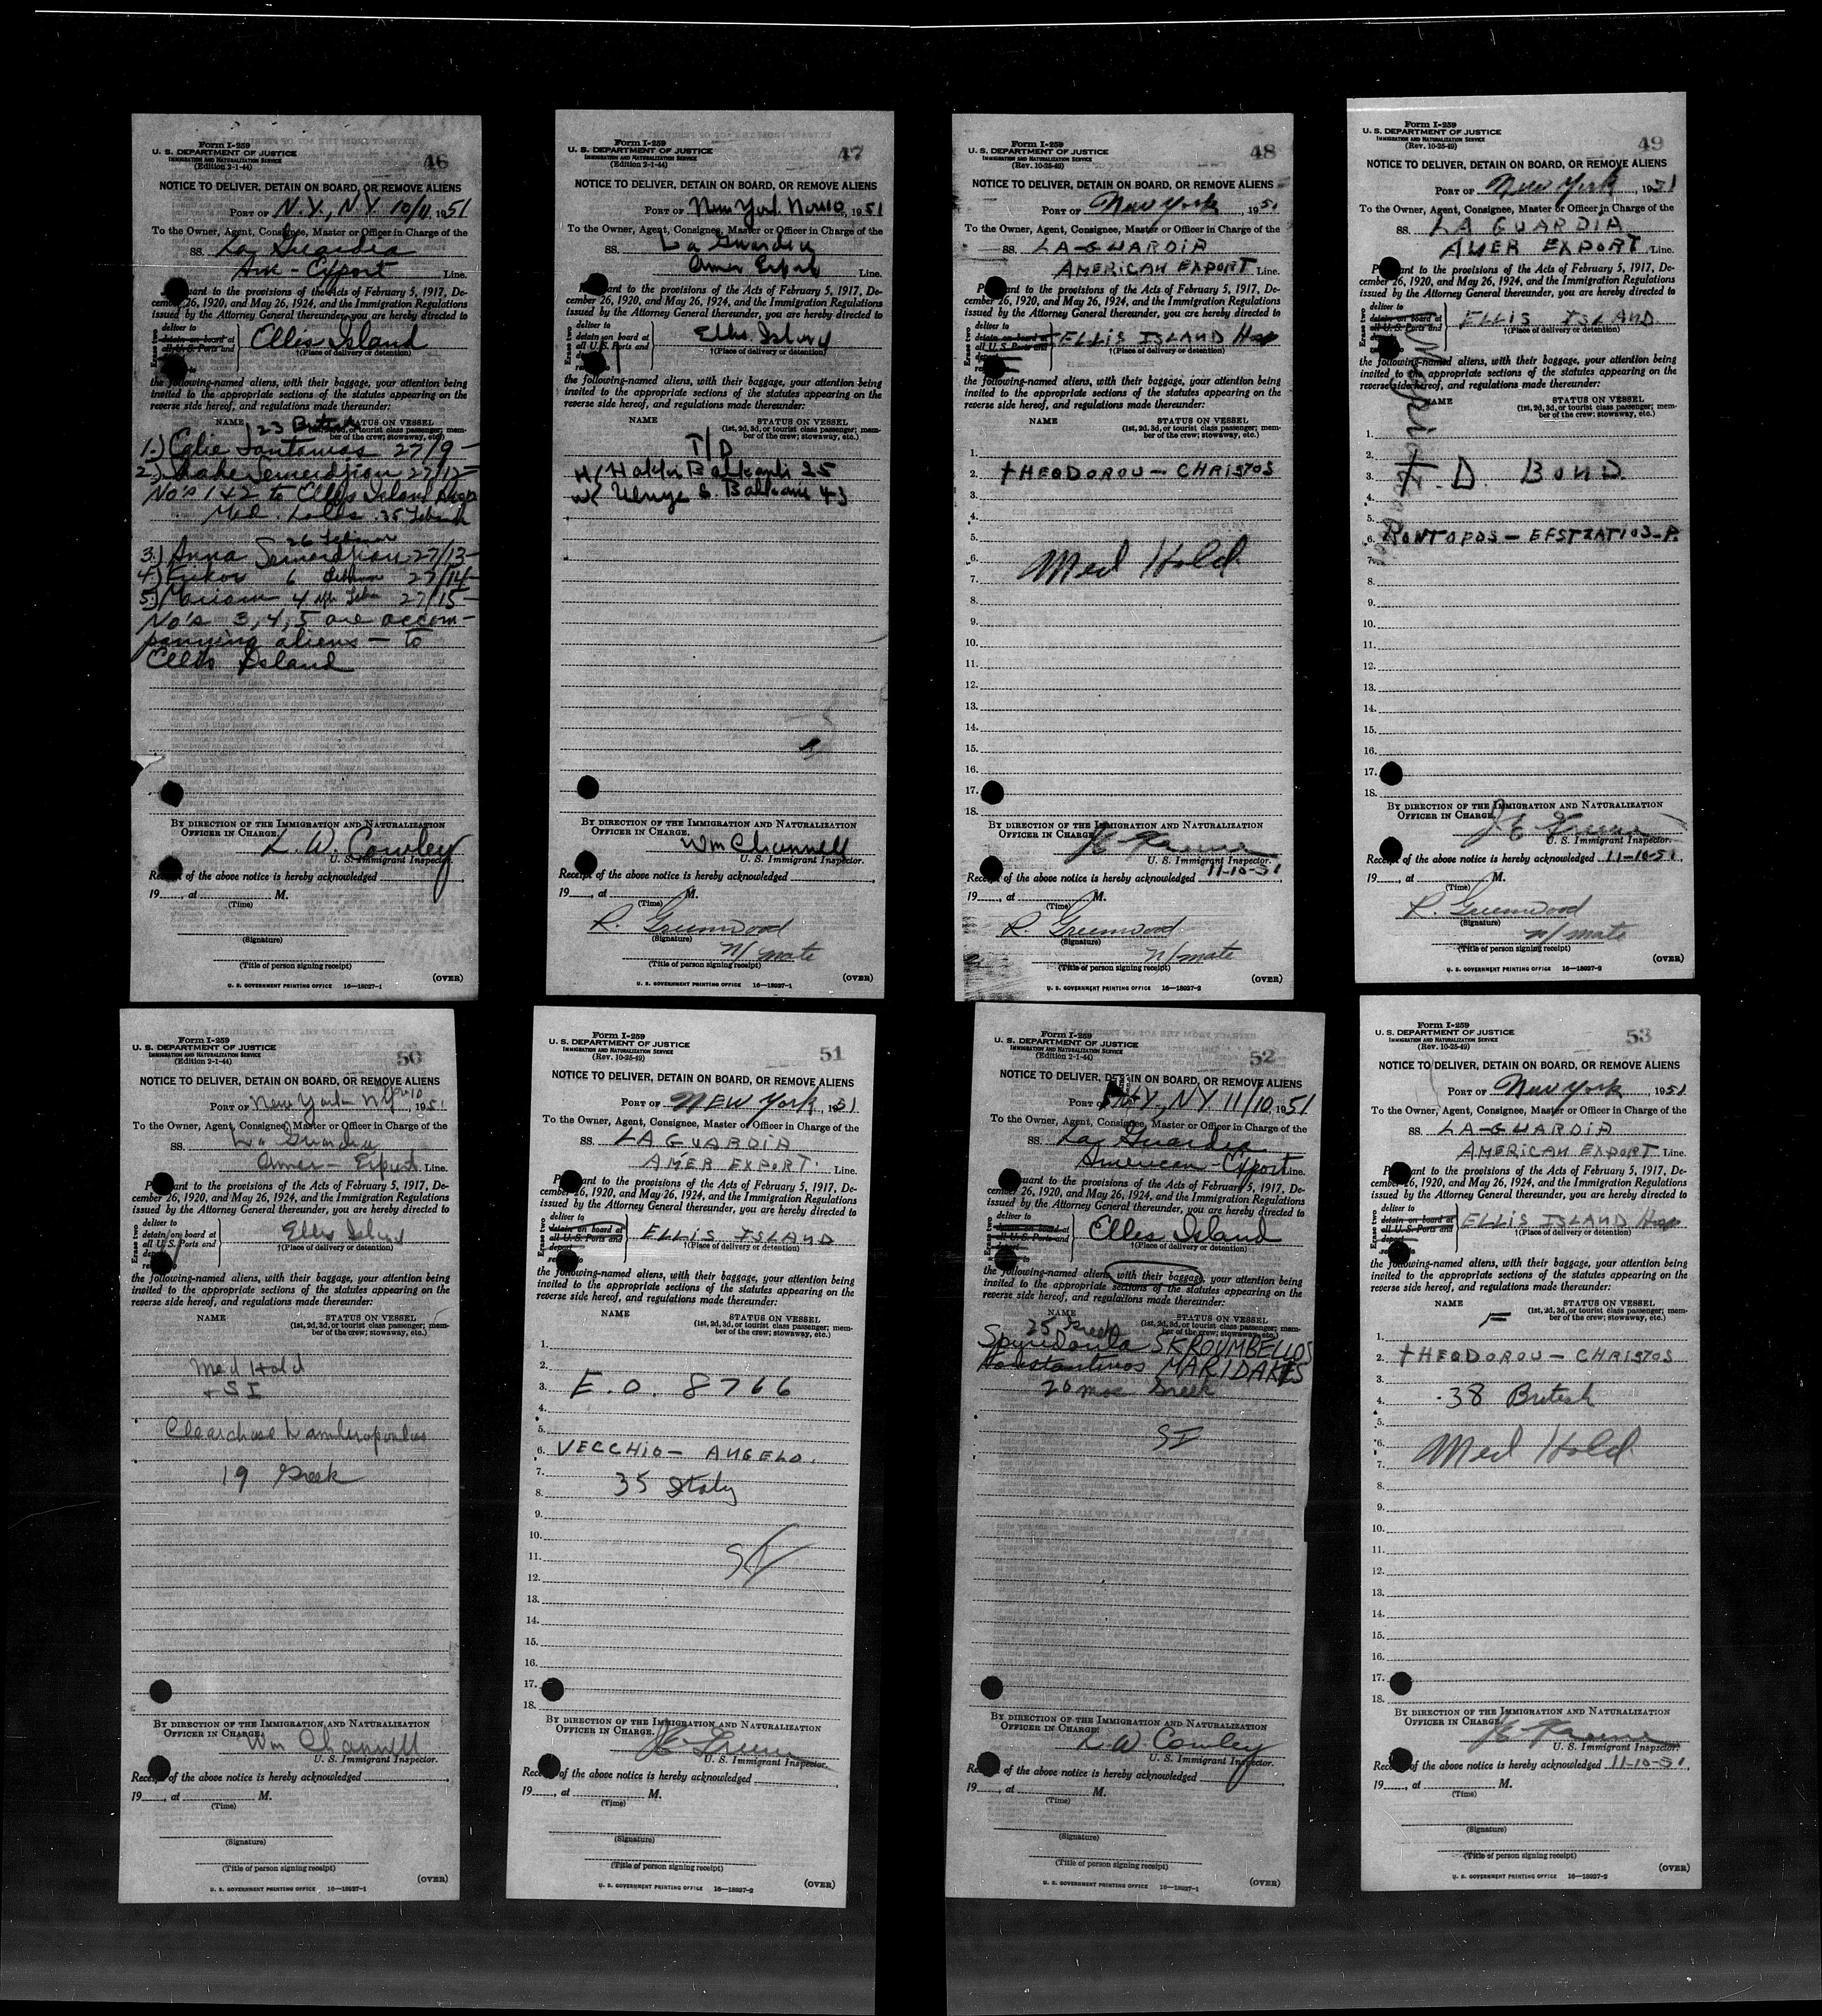 Form I-259
U. S. DEPARTMENT OF JUSTICE
IMMIGRATION AND NATURALIZATION SERVICE
(Edition 2-1-44)
46
NOTICE TO DELIVER, DETAIN ON BOARD, OR REMOVE ALIENS
PORT OF N.Y., N.Y. 10/11, 1951
To the Owner, Agent, Consignee, Master or Officer in Charge of the
SS. La Guardia
Am - Export Line.
ant to the provisions of the Acts of February 5, 1917, De-
cember 26, 1920, and May 26, 1924, and the Immigration Regulations
issued by the Attorney General thereunder, you are hereby directed to
Erase two
deliver to
detain on board at
all U. S. Ports and
Ellis Island
†(Place of delivery or detention)
the following-named aliens, with their baggage, your attention being
invited to the appropriate sections of the statutes appearing on the
reverse side hereof, and regulations made thereunder:
NAME STATUS ON VESSEL
(1st, 2d, 3d, or tourist class passenger; mem-
ber of the crew; stowaway, etc.)
23
1.) Santamas 27/9
2.) Semerdjian 27/12
No's 1 & 2 to Ellis Island Hosp
Med. Holds. 35
26
3.) Anna Semerdjian 27/13
4.) 6 27/14
5.) Mariam 4 27/15
No's 3, 4, 5 are accom-
panying aliens — to
Ellis Island
BY DIRECTION OF THE IMMIGRATION AND NATURALIZATION
OFFICER IN CHARGE.
L. W. Cowley
U. S. Immigrant Inspector.
Receipt of the above notice is hereby acknowledged
19, at M.
(Time)
(Signature)
(Title of person signing receipt)
(OVER)
U. S. GOVERNMENT PRINTING OFFICE 16—18027-1
Form I-259
U. S. DEPARTMENT OF JUSTICE
IMMIGRATION AND NATURALIZATION SERVICE
(Edition 2-1-44)
47
NOTICE TO DELIVER, DETAIN ON BOARD, OR REMOVE ALIENS
PORT OF New York Nov 10, 1951
To the Owner, Agent, Consignee, Master or Officer in Charge of the
SS. La Guardia
Amer Export Line.
ant to the provisions of the Acts of February 5, 1917, De-
cember 26, 1920, and May 26, 1924, and the Immigration Regulations
issued by the Attorney General thereunder, you are hereby directed to
Erase two
deliver to
detain on board at
all U. S. Ports and
Ellis Island
†(Place of delivery or detention)
the following-named aliens, with their baggage, your attention being
invited to the appropriate sections of the statutes appearing on the
reverse side hereof, and regulations made thereunder:
NAME STATUS ON VESSEL
(1st, 2d, 3d, or tourist class passenger; mem-
ber of the crew; stowaway, etc.)
T/D
25
43
BY DIRECTION OF THE IMMIGRATION AND NATURALIZATION
OFFICER IN CHARGE.
Wm Channell
U. S. Immigrant Inspector.
Receipt of the above notice is hereby acknowledged
19, at M.
(Time)
R. Greenwood
(Signature)
n/mate
(Title of person signing receipt)
(OVER)
U. S. GOVERNMENT PRINTING OFFICE 16—18027-1
Form I-259
U. S. DEPARTMENT OF JUSTICE
IMMIGRATION AND NATURALIZATION SERVICE
(Rev. 10-25-49)
48
NOTICE TO DELIVER, DETAIN ON BOARD, OR REMOVE ALIENS
PORT OF New York, 1951
To the Owner, Agent, Consignee, Master or Officer in Charge of the
SS. LA-GUARDIA
AMERICAN EXPORT Line.
ant to the provisions of the Acts of February 5, 1917, De-
cember 26, 1920, and May 26, 1924, and the Immigration Regulations
issued by the Attorney General thereunder, you are hereby directed to
Erase two
deliver to
detain on board at
all U. S. Ports and
ELLIS ISLAND Hosp
†(Place of delivery or detention)
the following-named aliens, with their baggage, your attention being
invited to the appropriate sections of the statutes appearing on the
reverse side hereof, and regulations made thereunder:
NAME STATUS ON VESSEL
(1st, 2d, 3d, or tourist class passenger; mem-
ber of the crew; stowaway, etc.)
1.
2. THEODOROU — CHRISTOS
3.
4.
5.
6. Med Hold
7.
8.
9.
10.
11.
12.
13.
14.
15.
16.
17.
18.
BY DIRECTION OF THE IMMIGRATION AND NATURALIZATION
OFFICER IN CHARGE.
U. S. Immigrant Inspector.
Receipt of the above notice is hereby acknowledged 11-10-51
19, at M.
(Time)
R. Greenwood
(Signature)
n/mate
(Title of person signing receipt)
(OVER)
U. S. GOVERNMENT PRINTING OFFICE 16—18027-2
Form I-259
U. S. DEPARTMENT OF JUSTICE
IMMIGRATION AND NATURALIZATION SERVICE
(Rev. 10-25-49)
49
NOTICE TO DELIVER, DETAIN ON BOARD, OR REMOVE ALIENS
PORT OF New York, 1951
To the Owner, Agent, Consignee, Master or Officer in Charge of the
SS. LA GUARDIA
AMER EXPORT Line.
ant to the provisions of the Acts of February 5, 1917, De-
cember 26, 1920, and May 26, 1924, and the Immigration Regulations
issued by the Attorney General thereunder, you are hereby directed to
Erase two
deliver to
detain on board at
all U. S. Ports and
ELLIS ISLAND
†(Place of delivery or detention)
the following-named aliens, with their baggage, your attention being
invited to the appropriate sections of the statutes appearing on the
reverse side hereof, and regulations made thereunder:
NAME STATUS ON VESSEL
(1st, 2d, 3d, or tourist class passenger; mem-
ber of the crew; stowaway, etc.)
1.
2.
3. T. D. BOND.
4.
5.
6. RONTOPOS — EFSTRATIOS — P.
7.
8.
9.
10.
11.
12.
13.
14.
15.
16.
17.
18.
BY DIRECTION OF THE IMMIGRATION AND NATURALIZATION
OFFICER IN CHARGE.
U. S. Immigrant Inspector.
Receipt of the above notice is hereby acknowledged 11-10-51.
19, at M.
(Time)
R. Greenwood
(Signature)
n/mate
(Title of person signing receipt)
(OVER)
U. S. GOVERNMENT PRINTING OFFICE 16—18027-2
Form I-259
U. S. DEPARTMENT OF JUSTICE
IMMIGRATION AND NATURALIZATION SERVICE
(Edition 2-1-44)
50
NOTICE TO DELIVER, DETAIN ON BOARD, OR REMOVE ALIENS
PORT OF New York NY Nov 10, 1951
To the Owner, Agent, Consignee, Master or Officer in Charge of the
SS. La Guardia
Amer - Export Line.
ant to the provisions of the Acts of February 5, 1917, De-
cember 26, 1920, and May 26, 1924, and the Immigration Regulations
issued by the Attorney General thereunder, you are hereby directed to
Erase two
deliver to
detain on board at
all U. S. Ports and
Ellis Island
†(Place of delivery or detention)
the following-named aliens, with their baggage, your attention being
invited to the appropriate sections of the statutes appearing on the
reverse side hereof, and regulations made thereunder:
NAME STATUS ON VESSEL
(1st, 2d, 3d, or tourist class passenger; mem-
ber of the crew; stowaway, etc.)
Med Hold
+ S I
19 Greek
BY DIRECTION OF THE IMMIGRATION AND NATURALIZATION
OFFICER IN CHARGE.
Wm Channell
U. S. Immigrant Inspector.
Receipt of the above notice is hereby acknowledged
19, at M.
(Time)
(Signature)
(Title of person signing receipt)
(OVER)
U. S. GOVERNMENT PRINTING OFFICE 16—18027-1
Form I-259
U. S. DEPARTMENT OF JUSTICE
IMMIGRATION AND NATURALIZATION SERVICE
(Rev. 10-25-49)
51
NOTICE TO DELIVER, DETAIN ON BOARD, OR REMOVE ALIENS
PORT OF NEW York, 1951
To the Owner, Agent, Consignee, Master or Officer in Charge of the
SS. LA GUARDIA
AMER EXPORT. Line.
ant to the provisions of the Acts of February 5, 1917, De-
cember 26, 1920, and May 26, 1924, and the Immigration Regulations
issued by the Attorney General thereunder, you are hereby directed to
Erase two
deliver to
detain on board at
all U. S. Ports and
deport
ELLIS ISLAND
†(Place of delivery or detention)
the following-named aliens, with their baggage, your attention being
invited to the appropriate sections of the statutes appearing on the
reverse side hereof, and regulations made thereunder:
NAME STATUS ON VESSEL
(1st, 2d, 3d, or tourist class passenger; mem-
ber of the crew; stowaway, etc.)
1.
2.
3. E.O. 8766
4.
5.
6. VECCHIO — ANGELO.
7.
8. 35 Italy
9.
10.
11. SI
12.
13.
14.
15.
16.
17.
18.
BY DIRECTION OF THE IMMIGRATION AND NATURALIZATION
OFFICER IN CHARGE.
U. S. Immigrant Inspector.
Receipt of the above notice is hereby acknowledged
19, at M.
(Time)
(Signature)
(Title of person signing receipt)
(OVER)
U. S. GOVERNMENT PRINTING OFFICE 16—18027-2
Form I-259
U. S. DEPARTMENT OF JUSTICE
IMMIGRATION AND NATURALIZATION SERVICE
(Edition 2-1-44)
52
NOTICE TO DELIVER, DETAIN ON BOARD, OR REMOVE ALIENS
PORT OF N.Y., NY 11/10, 1951
To the Owner, Agent, Consignee, Master or Officer in Charge of the
SS. La Guardia
American - Export Line.
suant to the provisions of the Acts of February 5, 1917, De-
cember 26, 1920, and May 26, 1924, and the Immigration Regulations
issued by the Attorney General thereunder, you are hereby directed to
Erase two
deliver to
detain on board at
all U. S. Ports and
Ellis Island
†(Place of delivery or detention)
the following-named aliens, with their baggage, your attention being
invited to the appropriate sections of the statutes appearing on the
reverse side hereof, and regulations made thereunder:
NAME STATUS ON VESSEL
(1st, 2d, 3d, or tourist class passenger; mem-
ber of the crew; stowaway, etc.)
25 Greek
Spyredoula SKROUMBELLOS
Konstantinos MARIDAKES
20 mos Greek
SI
BY DIRECTION OF THE IMMIGRATION AND NATURALIZATION
OFFICER IN CHARGE.
L. W Cowley
U. S. Immigrant Inspector.
Receipt of the above notice is hereby acknowledged
19, at M.
(Time)
(Signature)
(Title of person signing receipt)
(OVER)
U. S. GOVERNMENT PRINTING OFFICE 16—18027-1
Form I-259
U. S. DEPARTMENT OF JUSTICE
IMMIGRATION AND NATURALIZATION SERVICE
(Rev. 10-25-49)
53
NOTICE TO DELIVER, DETAIN ON BOARD, OR REMOVE ALIENS
PORT OF New York, 1951
To the Owner, Agent, Consignee, Master or Officer in Charge of the
SS. LA-GUARDIA
AMERICAN EXPORT Line.
ant to the provisions of the Acts of February 5, 1917, De-
cember 26, 1920, and May 26, 1924, and the Immigration Regulations
issued by the Attorney General thereunder, you are hereby directed to
Erase two
deliver to
detain on board at
all U. S. Ports and
ELLIS ISLAND Hosp
†(Place of delivery or detention)
the following-named aliens, with their baggage, your attention being
invited to the appropriate sections of the statutes appearing on the
reverse side hereof, and regulations made thereunder:
NAME STATUS ON VESSEL
(1st, 2d, 3d, or tourist class passenger; mem-
ber of the crew; stowaway, etc.)
1.
2. THEODOROU — CHRISTOS
3.
4. 38 British
5.
6. Med Hold
7.
8.
9.
10.
11.
12.
13.
14.
15.
16.
17.
18.
BY DIRECTION OF THE IMMIGRATION AND NATURALIZATION
OFFICER IN CHARGE.
U. S. Immigrant Inspector.
Receipt of the above notice is hereby acknowledged 11-10-51
19, at M.
(Time)
(Signature)
(Title of person signing receipt)
(OVER)
U. S. GOVERNMENT PRINTING OFFICE 16—18027-2